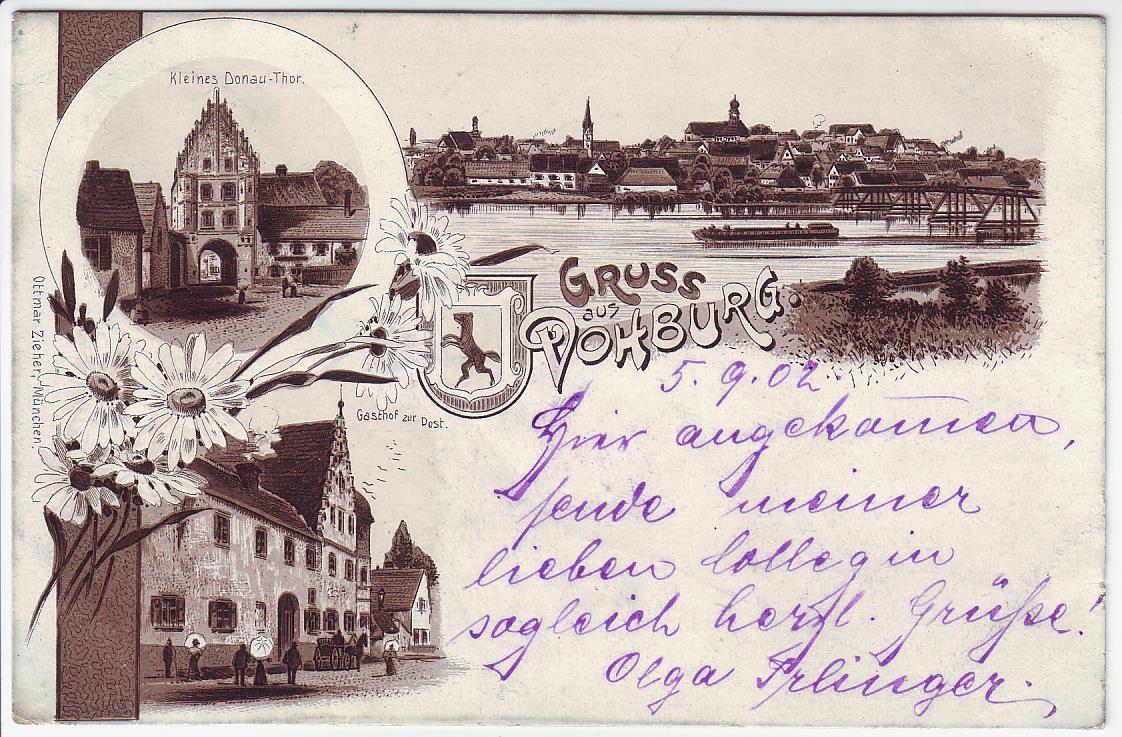 Kleines Donau-Thor.
GRUSS
aus
VOHBURG.
Gasthof zur Post.
Ottmar Zieher, München
5.9.02.
Hier angekom̄en,
sende meiner
lieben Collegin
sogleich herzl. Grüße!
Olga Irlinger.